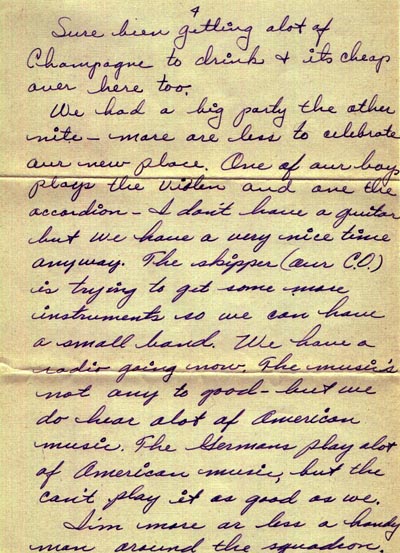 4
Sure bien getting alot of
Champagne to drink & its cheap
over here too.
We had a big party the other
nite - more are less to celebrate
our new place. One of our boys
plays the violen and one the
accordion - I don't have a guitar
but we have a very nice time
anyway. The skipper (our C.O.)
is trying to get some more
instruments so we can have
a small band. We have a
radio going now. The music's
not any to good - but we
do hear alot of American
music. The Germans play alot
of American music, but the
can't play it as good as we.
I'm more or less a handy
man around the squadron.